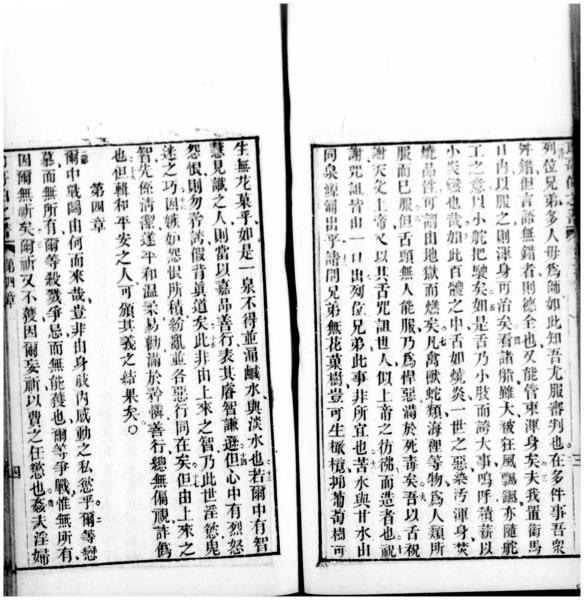 列位兄弟多人毋爲師如此知吾尤服審判也在多件事吾眾
舛錯但言語無錯者則德全也又能管束渾身矣夫我置銜馬
口內以服之則渾身可治矣看諸船雖大被狂風飄颻亦隨舵
工之意以小舵把駛矣如是舌乃小肢而誇大事嗚呼積薪以
小炎燬也哉如此百體之中舌如燒炎一世之惡染汚渾身焚
燒品件可謂由地獄而燃矣凡禽獸蛇類海裡等物爲人類所
服而已服但舌頭無人能服乃爲悍惡滿於死毒矣吾以舌祝
謝天父上帝又以其舌咒詛世人似上帝之彷彿而造者也祝
謝咒詛皆由一口出列位兄弟此事非所宜也苦水與甘水由
同泉源湧出乎請問兄弟無花菓樹豈可生橄欖抑葡萄樹可
生無花菓乎如是一泉不得並漏鹹水與淡水也若爾中有智
慧見識之人則當以嘉品善行表其睿智謙遜但心中有烈怒
怨恨則勿矜誇假背眞道矣此非由上來之智乃此世淫慾鬼
迷之巧因嫉妒怨恨所積紛亂並各惡行同在矣但由上來之
智先係清潔遂平和温柔易勸滿於矜憐善行總無偏視詐僞
也但輯和平安之人可頒其義之結果矣
第四章
爾中戰鬬由何而來哉豈非由身肢內感動之私慾乎爾等戀
慕而無所有爾等殺戮爭忌而無能獲也爾等爭戰惟無所有
因爾無祈矣爾祈又不獲因爾妄祈以費之任慾也姦夫淫婦
第四章
四